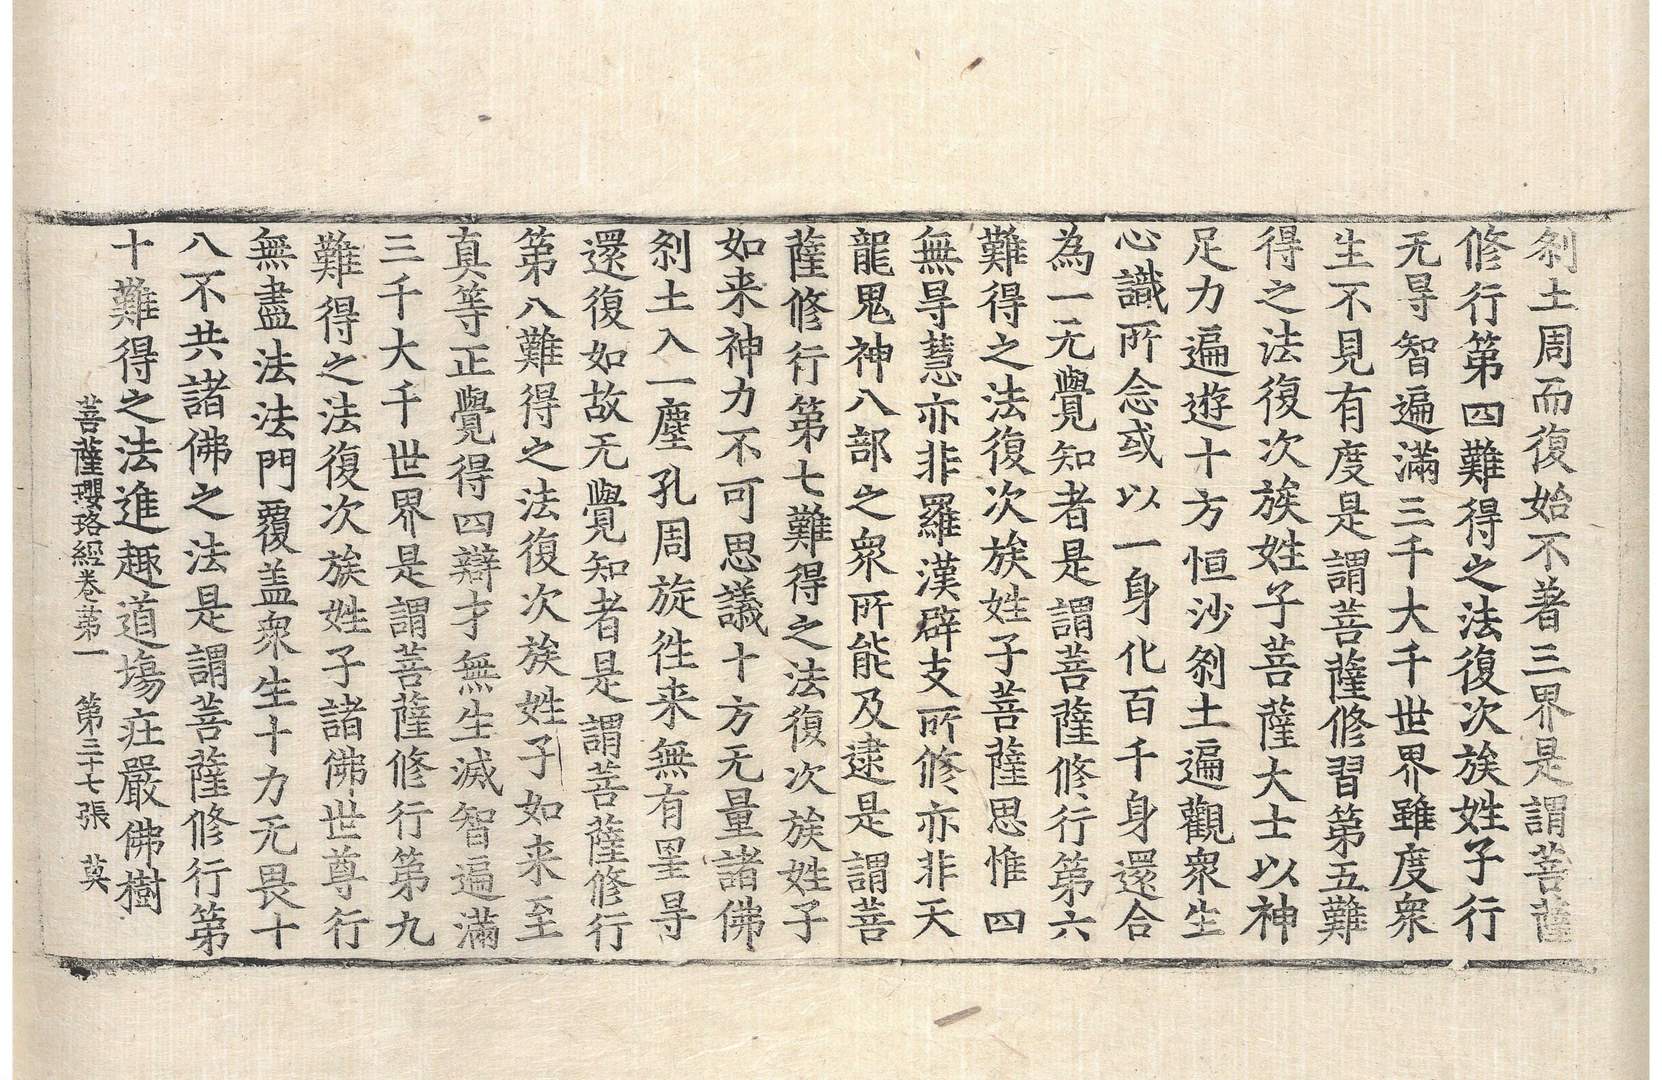 刹土周而復始不著三界是謂菩薩
修行第四難得之法復次族姓子行
无㝵智遍滿三千大千世界雖度衆
生不見有度是謂菩薩修習第五難
得之法復次族姓子菩薩大士以神
足力遍遊十方恒沙刹土遍觀衆生
心識所念或以一身化百千身還合
為一无覺知者是謂菩薩修行第六
難得之法復次族姓子菩薩思惟四
無㝵慧亦非羅漢辟支所修亦非天
龍鬼神八部之衆所能及逮是謂菩
薩修行第七難得之法復次族姓子
如来神力不可思議十方无量諸佛
刹土入一塵孔周旋徃来無有罣㝵
還復如故无覺知者是謂菩薩修行
第八難得之法復次族姓子如来至
真等正覺得四辯才無生滅智遍滿
三千大千世界是謂菩薩修行第九
難得之法復次族姓子諸佛世尊行
無盡法法門覆盖衆生十力无畏十
八不共諸佛之法是謂菩薩修行第
十難得之法進趣道場庄嚴佛樹
菩薩瓔珞經卷第一 第三十七張 莫